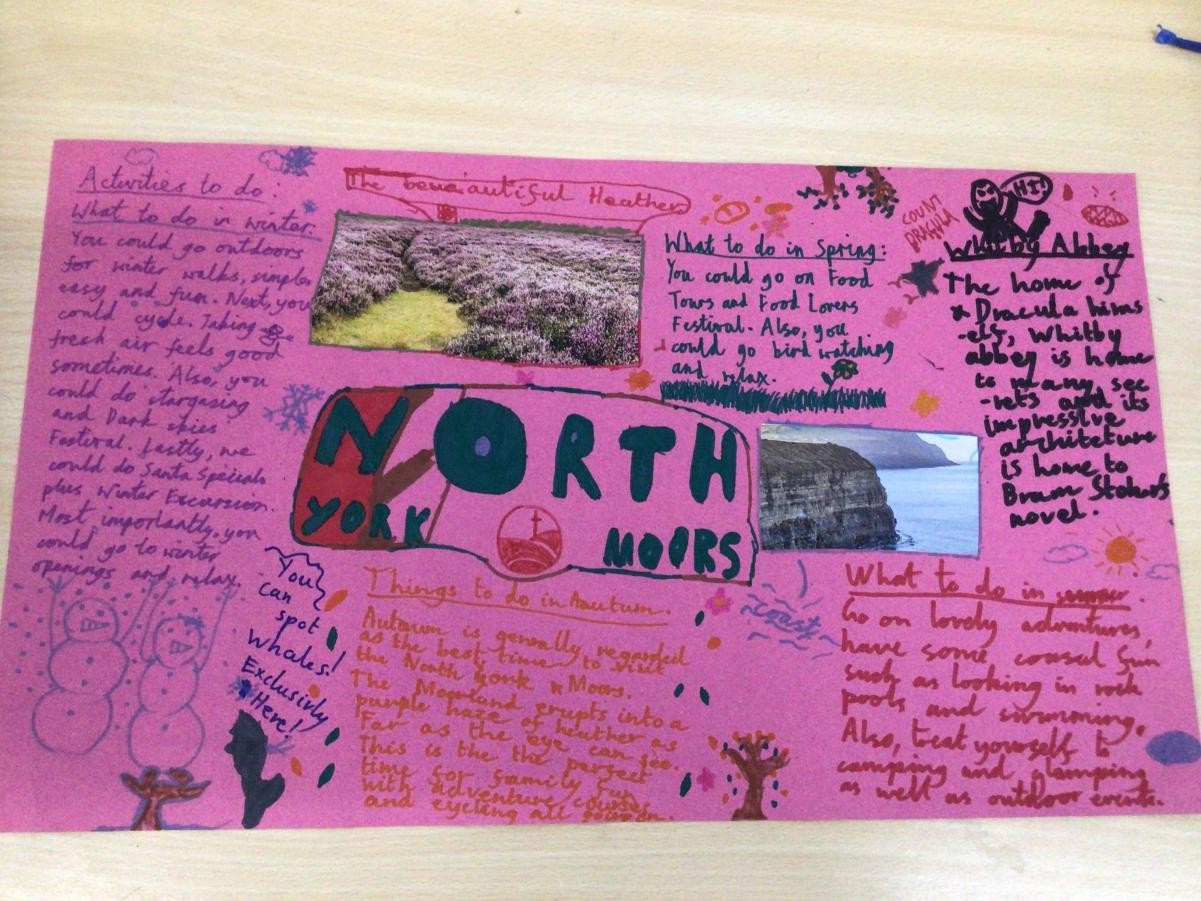 Activities to do:
What to do in winter:
You could go outdoors
for winter walks, simple,
easy and fun. Next, you
could cycle. Taking
fresh air feels good
sometimes. Also, you
could do stargasing
and Dark skies
Festival. Lastly, we
could do Santa Specials
plus Winter Excursion.
Most importantly, you
could go to winter
openings and relax.
The beuaiautiful Heather
What to do in Spring:
You could go on Food
Tours and Food Lovers
Festival. Also, you
could go bird watching
and relax.
COUNT
DRACULA
HI!
Whitby Abbey
The home of
Dracula hims
-elf, Whitby
abbey is home
to many sec
-rets and its
impressive
architeture
is home to
Bram Stokers
novel.
NORTH
YORK
MOORS
You
can
spot
Whales!
Exclusirly
Here!
Things to do in Autum.
Autumn is genrally regarded
as the best time to visit
the North York Moors.
The Moorland erupts into a
purple haze of heather as
far as the eye can see.
This is the the perfect
time for family fun
with adventure courses
and cycling all
coast
What to do in summer.
Go on lovely adventures,
have some coasal fun
such as looking in rock
pools and swimming.
Also, treat yourself to
camping and glamping
as well as outdoor events.